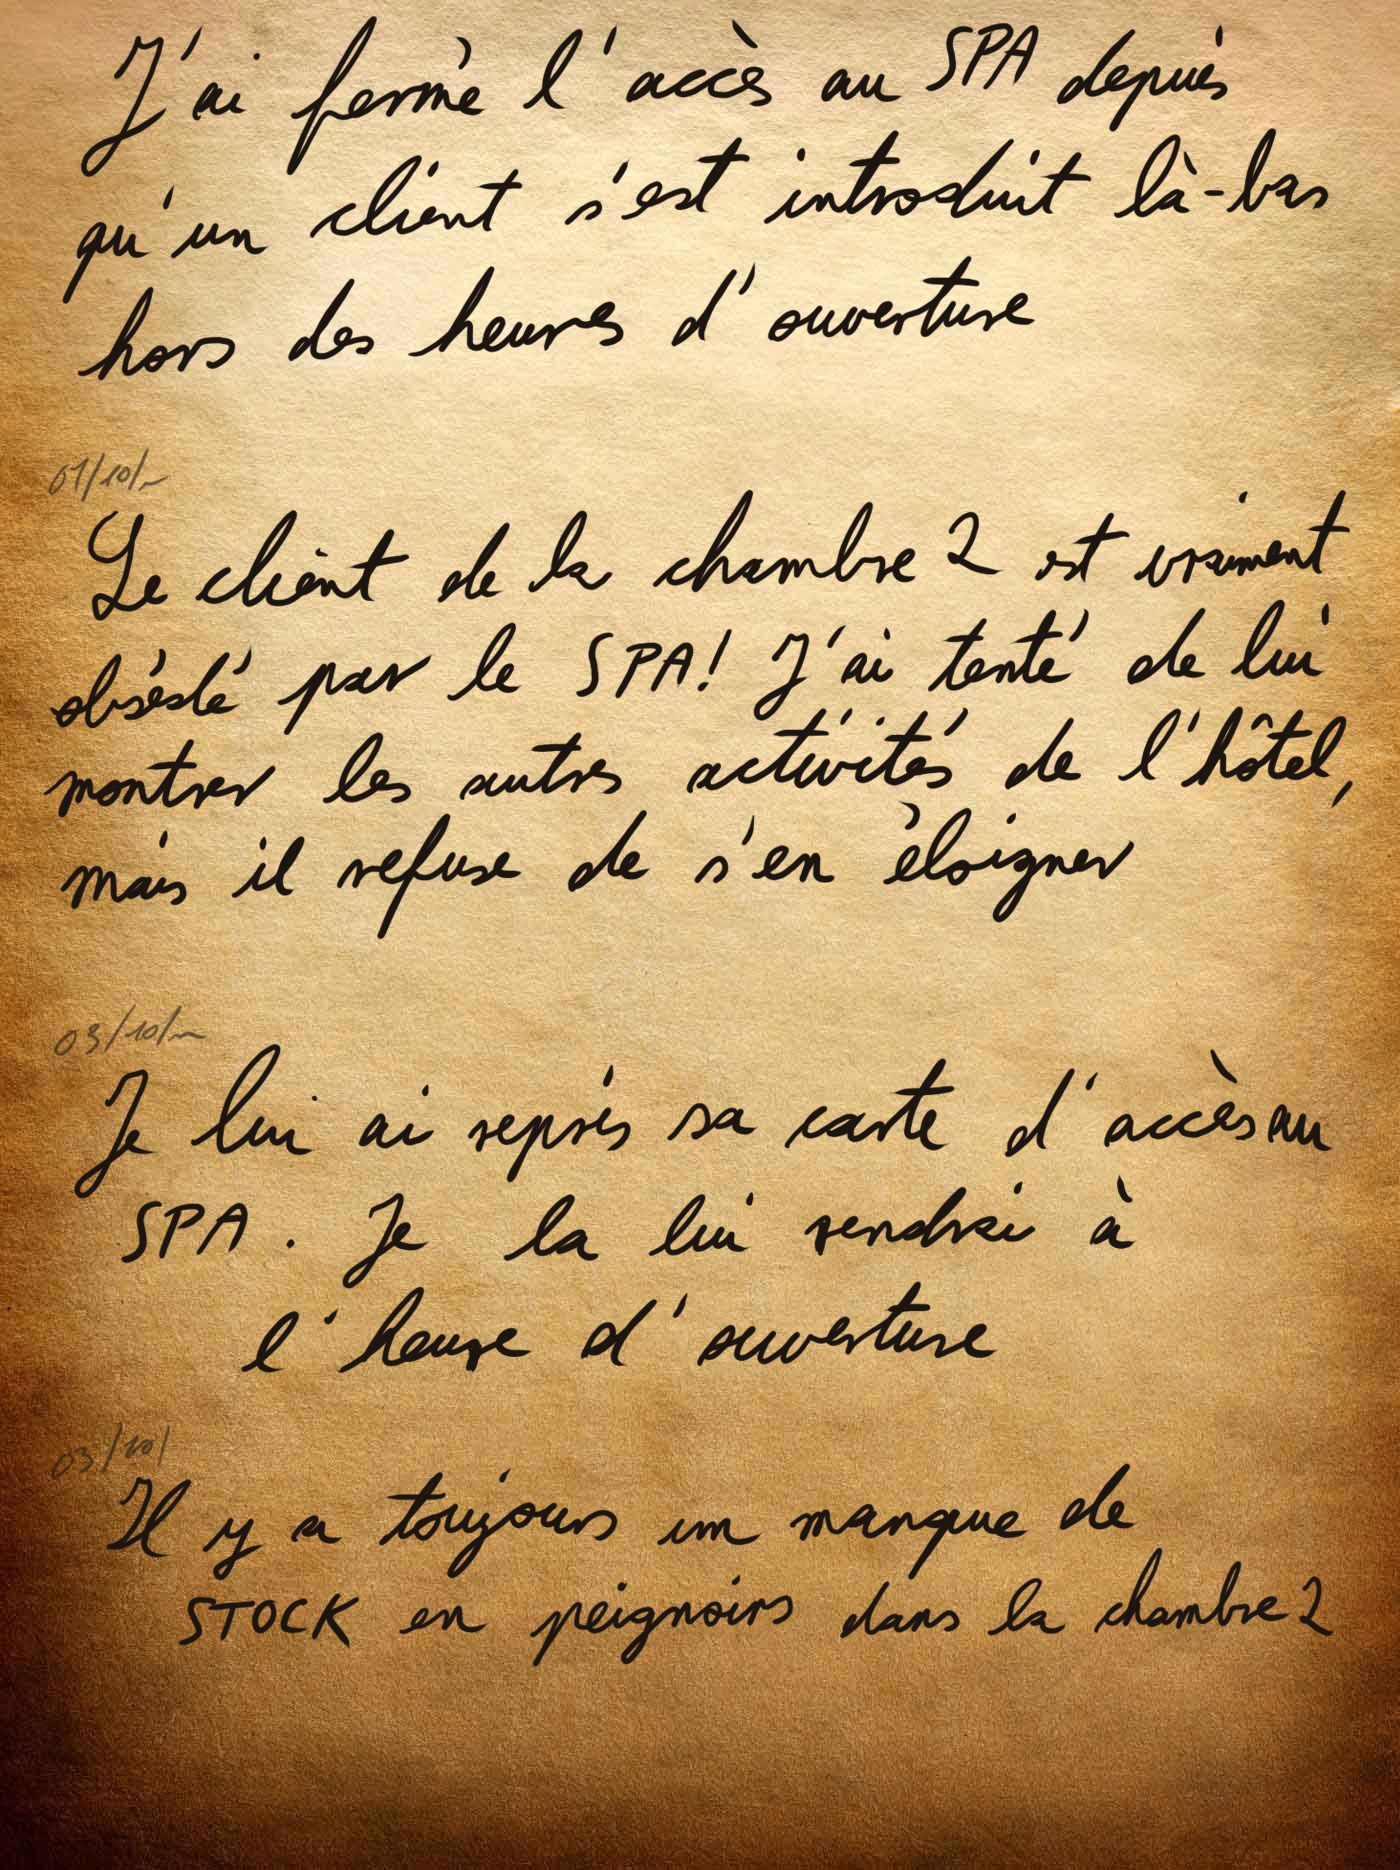 J'ai fermé l'accès au SPA depuis
qu'un client s'est introduit là-bas
hors des heures d'ouverture
01/10/~
Le client de la chambre 2 est vraiment
obsédé par le SPA! J'ai tenté de lui
montrer les autres activités de l'hôtel,
mais il refuse de s'en éloigner
03/10/~
Je lui ai repris sa carte d'accès au
SPA. Je la lui rendrai à
l'heure d'ouverture
03/10/
Il y a toujours un manque de
STOCK en peignoirs dans la chambre 2